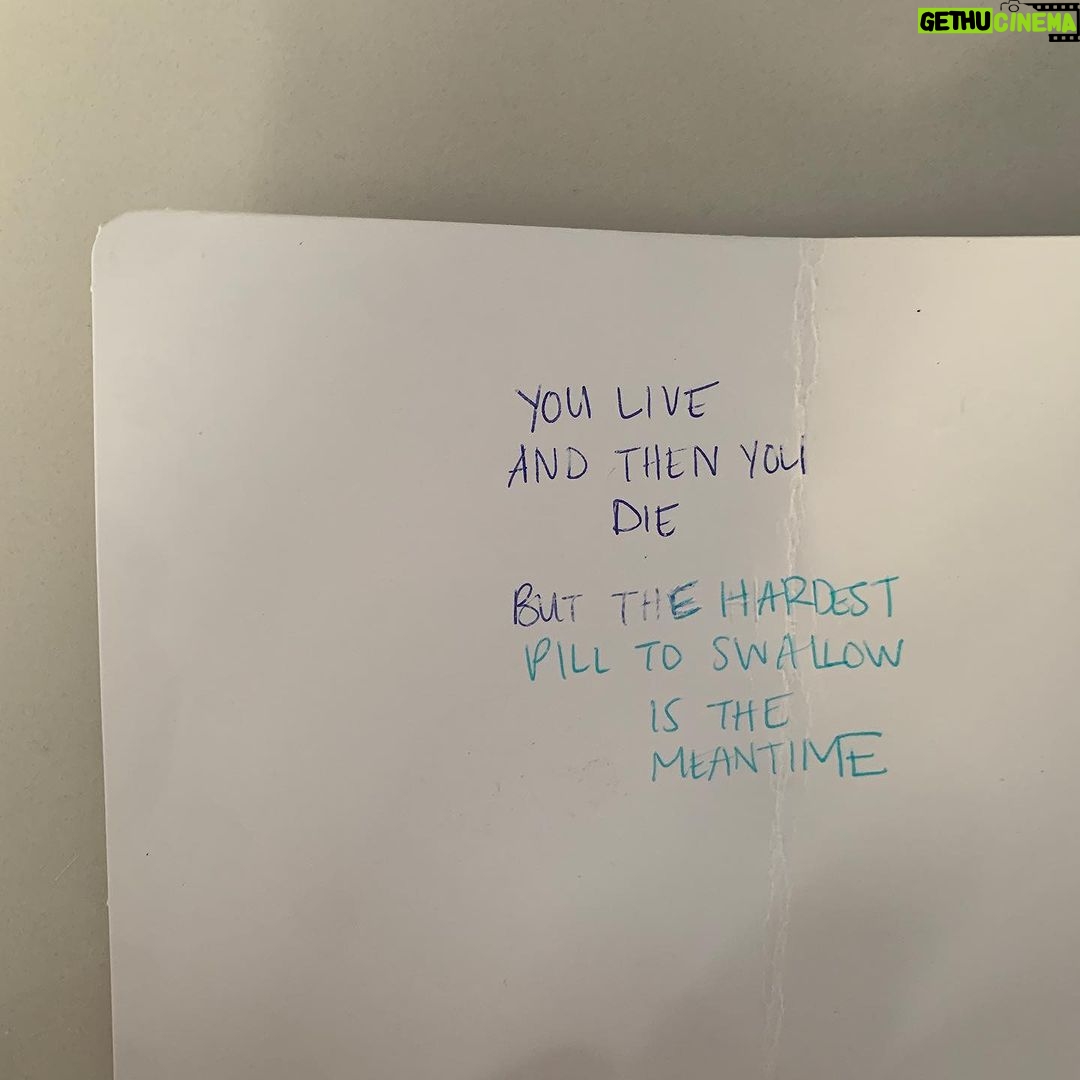 GETHUCINEMA
YOU LIVE
AND THEN YOU
DIE
BUT THE HARDEST
PILL TO SWALLOW
IS THE
MEANTIME